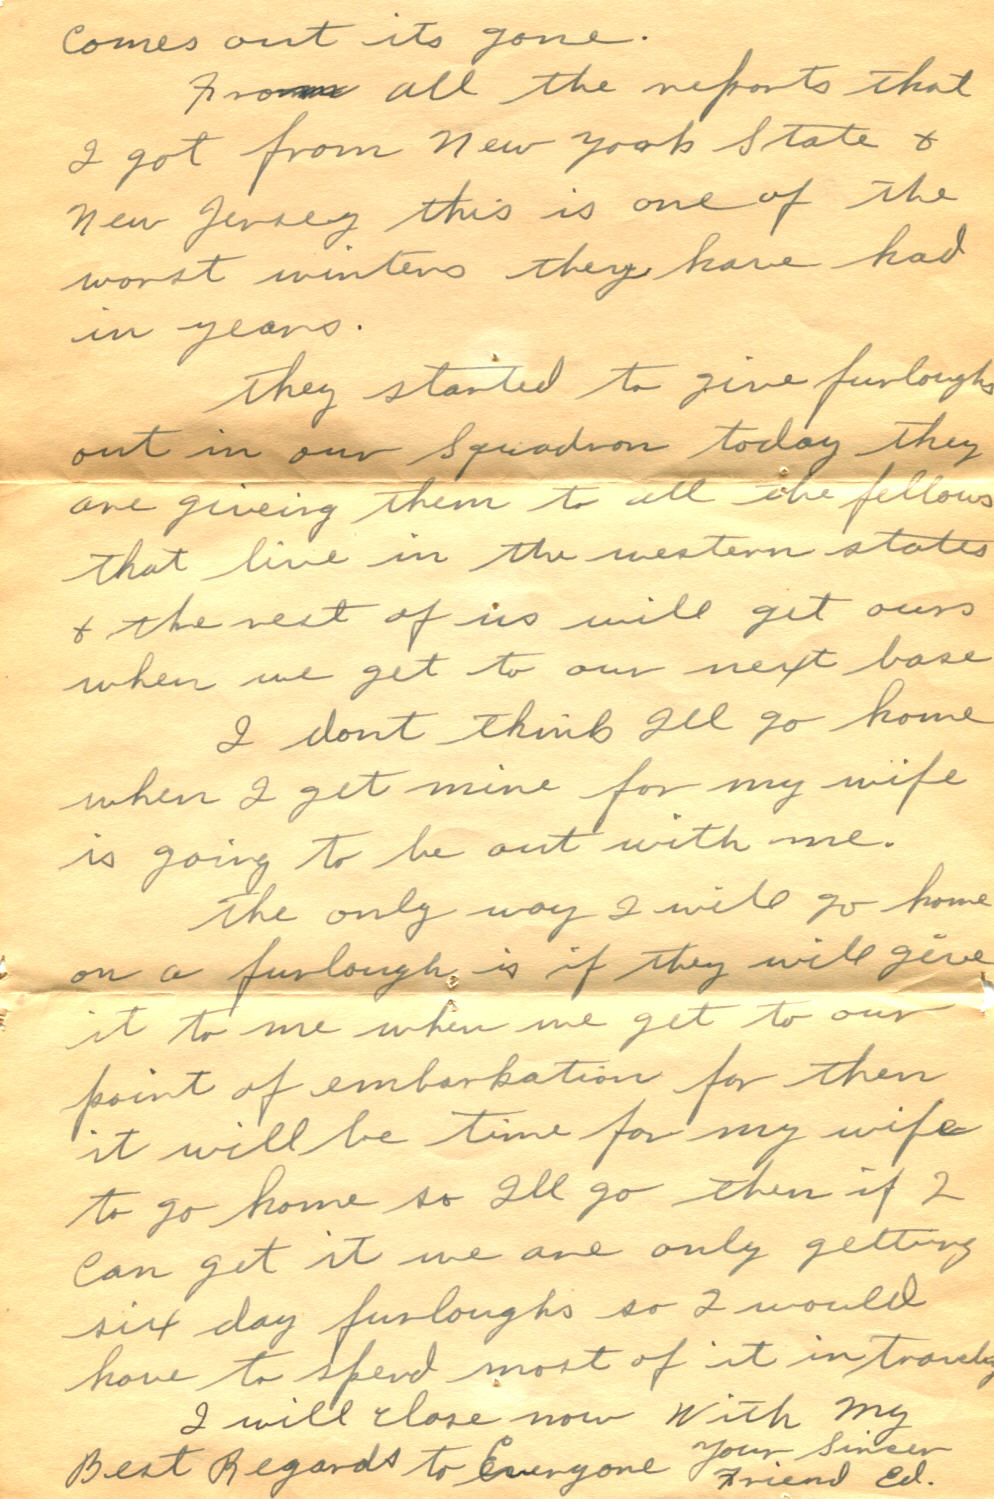 Comes out its gone.
From all the reports that
I got from New York State &
New Jersey this is one of the
worst winters they have had
in years.
They started to give furloughs
out in our Squadron today they
are giveing them to all the fellows
that live in the western states
& the rest of us will get ours
when we get to our next base
I dont think Ill go home
when I get mine for my wife
is going to be out with me.
The only way I will go home
on a furlough is if they will give
it to me when we get to our
point of embarkation for then
it will be time for my wife
to go home so Ill go then if I
can get it we are only getting
six day furloughs so I would
have to spend most of it in traveling
I will close now With My
Best Regards to Everyone Your Sincer
Friend Ed.